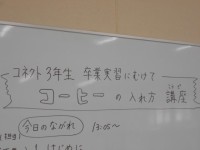 コネクト3年生 卒業実習にむけて
コーヒーの入れ方 講座
今日のながれ 13:05〜
はじめに